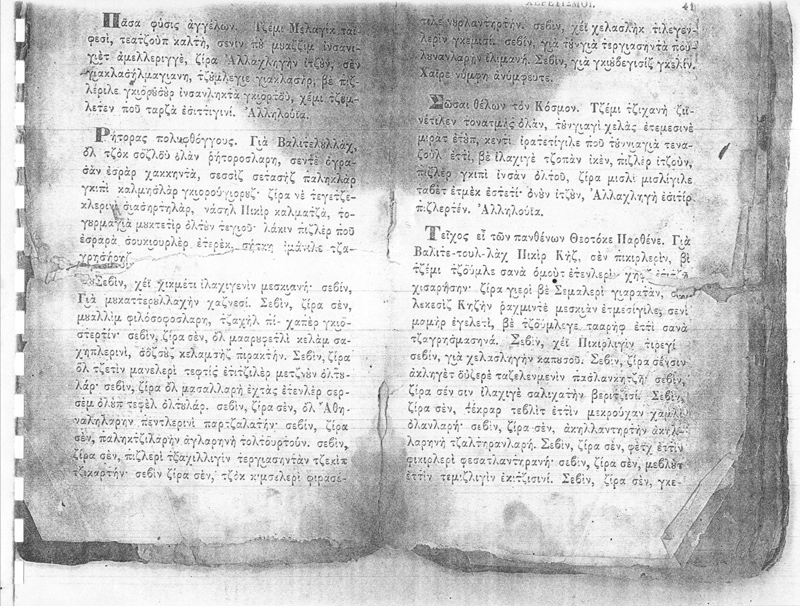 Πᾶσα φύσις ἀγγέλων. Τζέμι Μελαγὶκ ταϊ-
φεσὶ, τεατζοὺπ καλτὴ, σενὶν πȣ̀ μυαζζὶμ ἰνσανι-
γιὲτ ἀμελλεριγγὲ, ζίρα Ἀλλαχληγὴν ἰτζȣ̀ν, σὲν
γιακλασὴλμαγιανὴ, τζȣμλεγιὲ γιακλασὴρ, βὲ πιζ-
λέριλε γκιορȣσὺρ ἰνσανληκτὰ γκιορτȣ̀, χέμι τζȣμ-
λετὲν ποῦ ταρζὰ ἐσιττιγινί. Ἀλληλούϊα.
Ῥήτορας πολυφθόγγους. Γιὰ Βαλιτελȣλλὰχ,
ὂλ τζὸκ σȯζλȣ̀ ὀλὰν ῥήτοροσλαρη, σεντὲ ὀγρα-
σὰν ἐσρὰρ χακκηντὰ, σεσσὶζ σετασὴζ παληκλὰρ
γκιπὶ καλμησλὰρ γκιοροὺγιορȣζ· ζίρα νὲ τεγετζε-
κλερινὶ σιασηρτηλὰρ, νάσηλ Πικὶρ καλματζὰ, το-
γȣρμαγιὰ μȣκτετὶρ ὀλτȣ̀ν τεγιού· λάκιν πιζλὲρ ποῦ
ἐσραρὰ σουκιουρλὲρ ἐτερὲκ, σητκη ἰμάνιλε τζα-
γρησήρηζ.
Σεβὶν, χέϊ χικμέτι ἰλαχιγενὶν μεσκιανή· σεβὶν,
Γιὰ μυκαττερȣλλαχὴν χαζνεσί. Σεβὶν, ζίρα σὲν,
μȣαλλὶμ φιλόσοφοσλαρη, τζαχὴλ πὶ- χαπὲρ γκιὸ-
στερτίν· σεβὶν, ζίρα σὲν, ὂλ μααρȣφετλὶ κελὰμ σα-
χηπλερινὶ, σὄζσȣ̀ζ κελαμσὴζ πιρακτήν. Σεβὶν, ζίρα
ὂλ τζετὶν μανελερὶ τεφτὶς ἐτιτζιλὲρ μετζνȣ̀ν ὀλτȣ-
λάρ· σεβὶν, ζίρα ὂλ μασαλλαρὴ ἐχτὰς ἐτενλὲρ σερ-
σὲμ ὀλȣ̀π τεφὲλ ὀλτȣλάρ. σεβὶν, ζίρα σὲν, ὂλ Ἀθη-
ναληλαρὴν πεντλερινὶ παρτζαλατήν· σεβὶν, ζίρα
σὲν, παληκτζιλαρὴν ἀγλαρηνὴ τολτουρτούν. σεβὶν,
ζίρα σὲν, πιζλερὶ τζαχιλλιγὶν τεργιασηντὰν τζεκὶπ
τζικαρτήν· σεβὶν ζίρα σὲν, τζὸκ κιμσελερὶ φιρασέ-
ΧΕΡΕΤΙΣΜΟΙ. 41
τιλὲ νȣρλαντηρτήν. σεβὶν, χέϊ χελασλὴκ τιλεγεν-
λερὶν γκεμισί. σεβὶν, γιὰ τȣνγιὰ τεργιασηντὰ ποὺ-
λȣνανλαρὴν λιμανή. Σεβὶν, γιὰ γκιοȣβεγισὶζ γκελίν.
Χαῖρε νύμφη ἀνύμφευτε.
Σῶσαι θέλων τὸν Κόσμον. Τζέμι τζιχανὴ ζιϊ-
νέτιλεν τονατμὴς ὀλὰν, τȣνγιαγὶ χελὰς ἐτεμεσινὲ
μȣρὰτ ἐτȣ̀π, κεντὶ ἰρατετίγιλε ποῦ τȣνιαγιὰ τενα-
ζοὺλ ἐττὶ, βὲ ἰλαχιγὲ τζοπὰν ἰκὲν, πιζλὲρ ἰτζοὺν,
πιζλὲρ γκιπὶ ἰνσὰν ὀλτοῦ, ζίρα μισλὶ μισλίγιλε
ταβὲτ ἐτμὲκ ἐστετί· ὀνȣ̀ν ἰτζȣν, Ἀλλαχληγὴ ἐσιτὶρ
πιζλερτέν. Ἀλληλούϊα.
Τεῖχος εἶ τῶν πανθένων Θεοτόκε Παρθένε. Γιὰ
Βαλιτε-τουλ-λὰχ Πικὶρ Κὴζ, σὲν πικιρλερὶν, βὶ
τζέμι τζοῦμλε σανὰ ὀμοὺτ ἐτενλερὶν
χισαρήσην· ζίρα γιερὶ βὲ Σεμαλερὶ γιαρατὰν,
λεκεσὶζ Κηζὴν ῥαχμιντὲ μεσκιὰν ἐτμεσίγιλε, σενὶ
μαμὴρ ἐγελετὶ, βὲ τζȣμλιγὲ τααρὴφ ἐττὶ σανὰ
τζαγρησμασηνά. Σεβὶν, χέϊ Πικιρλιγὶν τιρεγὶ
σεβὶν, γιὰ χελασληγὴν καπȣσού. Σεβὶν, ζίρα σένσιν
ἀκληγὲτ ȣ̓ζερὲ ταζελενμενὶν πασλανκητζή· σεβὶν,
ζίρα σὲν σιν ἰλαχιγὲ σαλιχατὴν βεριτζισί. Σεβὶν,
ζίρα σὲν, φέκραρ τεβλὶτ ἐττὶν μεκροῦχαν χαμλὲ
ὀλανλαρή· σεβὶν, ζίρα σὲν, ἀκηλλαντηρτὴν ἀκηλ-
λαρηνὴ τζαλτηρανλαρή. Σεβὶν, ζίρα σὲν, φὲτχ ἐττὶν
φικιρλερὶ φεσατλαντηρανή· σεβὶν, ζίρα σὲν, μεβλȣ̀τ
ἐττὶν τεμιζλιγὶν ἐκιτζισινί. Σεβὶν, ζίρα σὲν, γκε-